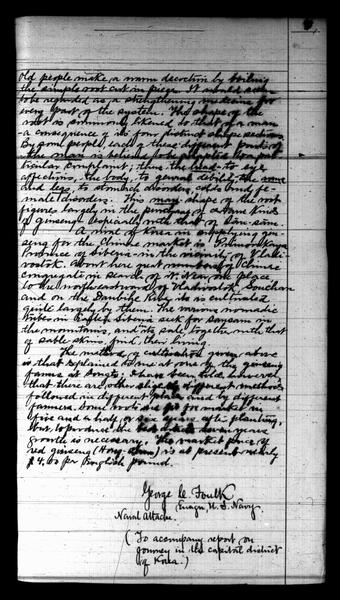 old people make a warm decoction by boiling
the simple root cut in pieces. It would seem
to be regarded as a strengthening medicine for
every part of the system. The shape of the
root is commonly likened to that of a man
a consequence of its four distinct shape sections.
By some people, each of these different parts of
the man is believed to be adapted to a par-
ticular complaint; thus, the head to eye
affections, the body, to general debility, the arms
and legs, to stomach disorders, colds and fe-
male disorders. This man shape of the root
figures largely in the purchase of some kinds
of ginseng especially with that of San-sam.
A rival of Korea in supplying gin-
seng for the Chinese market is Primorskaya
Province of Siberia in the vicinity of Vladi-
vostok. Down here great numbers of Chinese
congregate in search of it. Near one place
to the north eastward of Vladivostok, Souchan
and on the Daubihe River, its is cultivated
quite largely by them. The various nomadic
tribes in Eastern Siberia seek for Sansam in
the mountains, and its sale, together with that
of sable skins, find their living.
The method of cultivation given above
is that explained to me at one of the ginseng
farms at Songto; I have been told however
that there are other slightly different methods
followed in different places and by different
farmers. Some roots are fit for market in
five and a half, or six years after planting,
but, to produce the best seven years
growth is necessary. The market price of
red ginseng (Hong-sam) is at present nearly
per English pound.
George C. Foulk
Ensign, U. S. Navy
Naval Attache.
(To acompany report on
journey in the capital district
of Korea.)